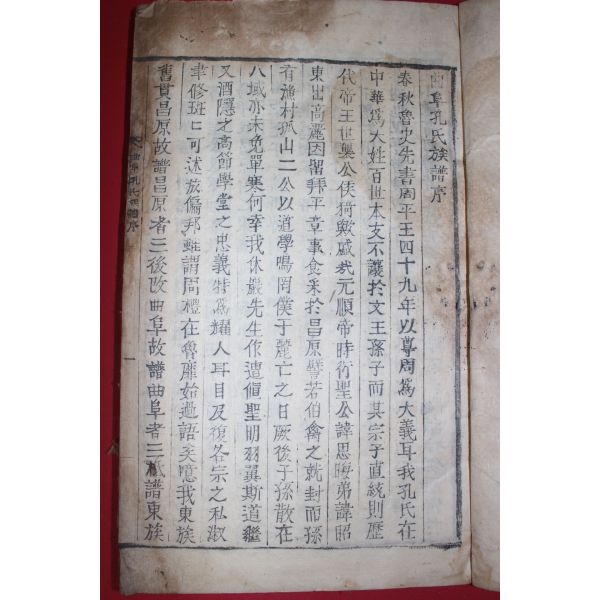 曲阜孔氏族譜序
春秋魯史先書周平王四十九年以尊周爲大義耳我孔氏在
中華爲大姓百世本支不讓於文王孫子而其宗子直統則歷
代帝王世襲公侯猗歟盛哉元順帝時衍聖公諱思晦弟諱昭
東出高麗因留拜平章事食采於昌原譬若伯禽之就封而孫
有漁村孤山二公以道學鳴罔僕于麗亡之日厥後子孫散在
八域亦未免單寒何幸我休巖先生作遭値聖明羽翼斯道繼
又酒隱之高節學堂之忠義特爲耀人耳目及復各宗之私淑
聿修班班可述於偏邦雖謂周禮在魯靡始過語矣噫我東族
舊貫昌原故譜昌原者三後改曲阜故譜曲阜者三
譜東族
孔氏
譜序
一